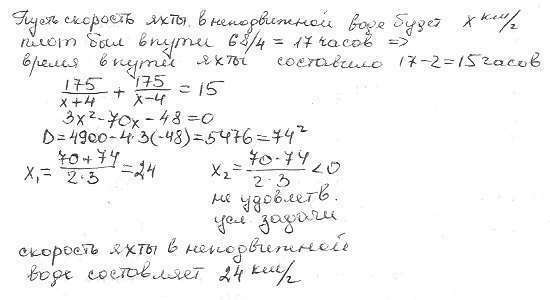 Пусть скорость яхты в неподвижной воде будет x км/г
плот был в пути 68/4 = 17 часов =>
время в пути яхты составило 17-2=15 часов
175/(x+4) + 175/(x-4) = 15
3x²-70x-48=0
D=4900-4·3(-48)=5476=74²
x₁=(70+74)/(2·3)=24 x₂=(70-74)/(2·3)<0
не удовлетв.
усл задачи
скорость яхты в неподвижной
воде составляет 24 км/г